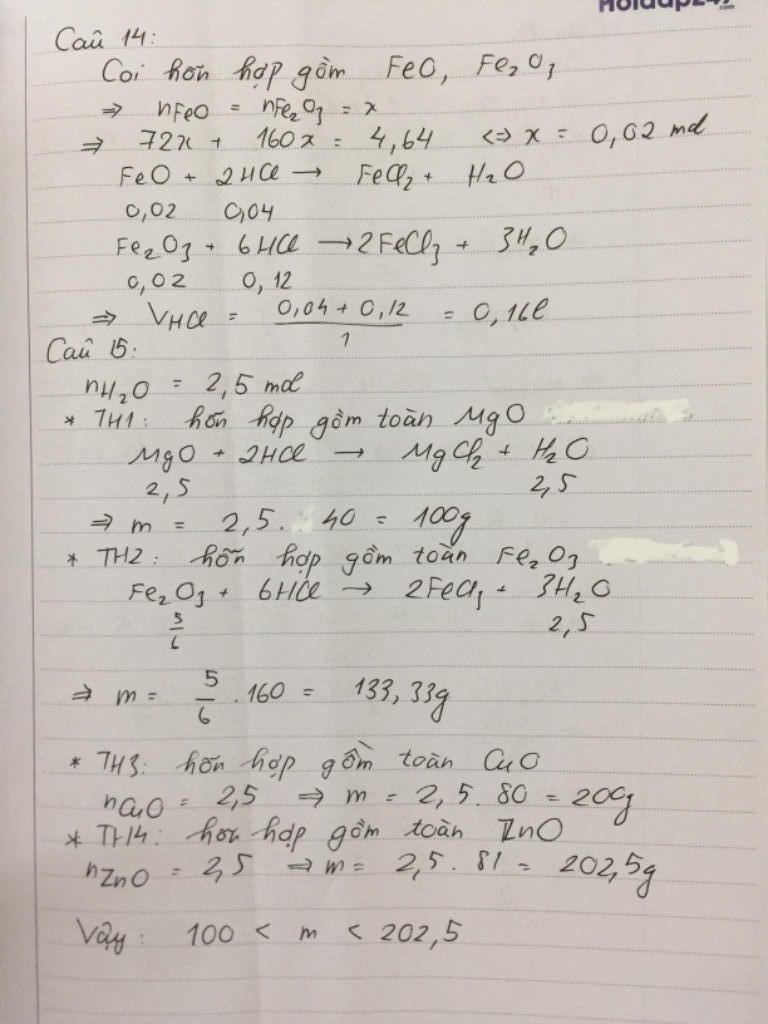 Câu 14:
Coi hỗn hợp gồm FeO, Fe₂O₃
⇒ nFeO = nFe₂O₃ = x
⇒ 72x + 160x = 4,64 ⇔ x = 0,02 mol
FeO + 2HCl → FeCl₂ + H₂O
0,02 0,04
Fe₂O₃ + 6HCl → 2FeCl₃ + 3H₂O
0,02 0,12
⇒ VHCl = (0,04 + 0,12)/1 = 0,16l
Câu 15:
nH₂O = 2,5 mol
* TH1: hỗn hợp gồm toàn MgO
MgO + 2HCl → MgCl₂ + H₂O
2,5 2,5
⇒ m = 2,5. 40 = 100g
* TH2: hỗn hợp gồm toàn Fe₂O₃
Fe₂O₃ + 6HCl → 2FeCl₃ + 3H₂O
5/6 2,5
⇒ m = 5/6 . 160 = 133,33g
* TH3: hỗn hợp gồm toàn CuO
nCuO = 2,5 ⇒ m = 2,5. 80 = 200g
* TH4: hỗn hợp gồm toàn ZnO
nZnO = 2,5 ⇒ m = 2,5 . 81 = 202,5g
Vậy: 100 < m < 202,5